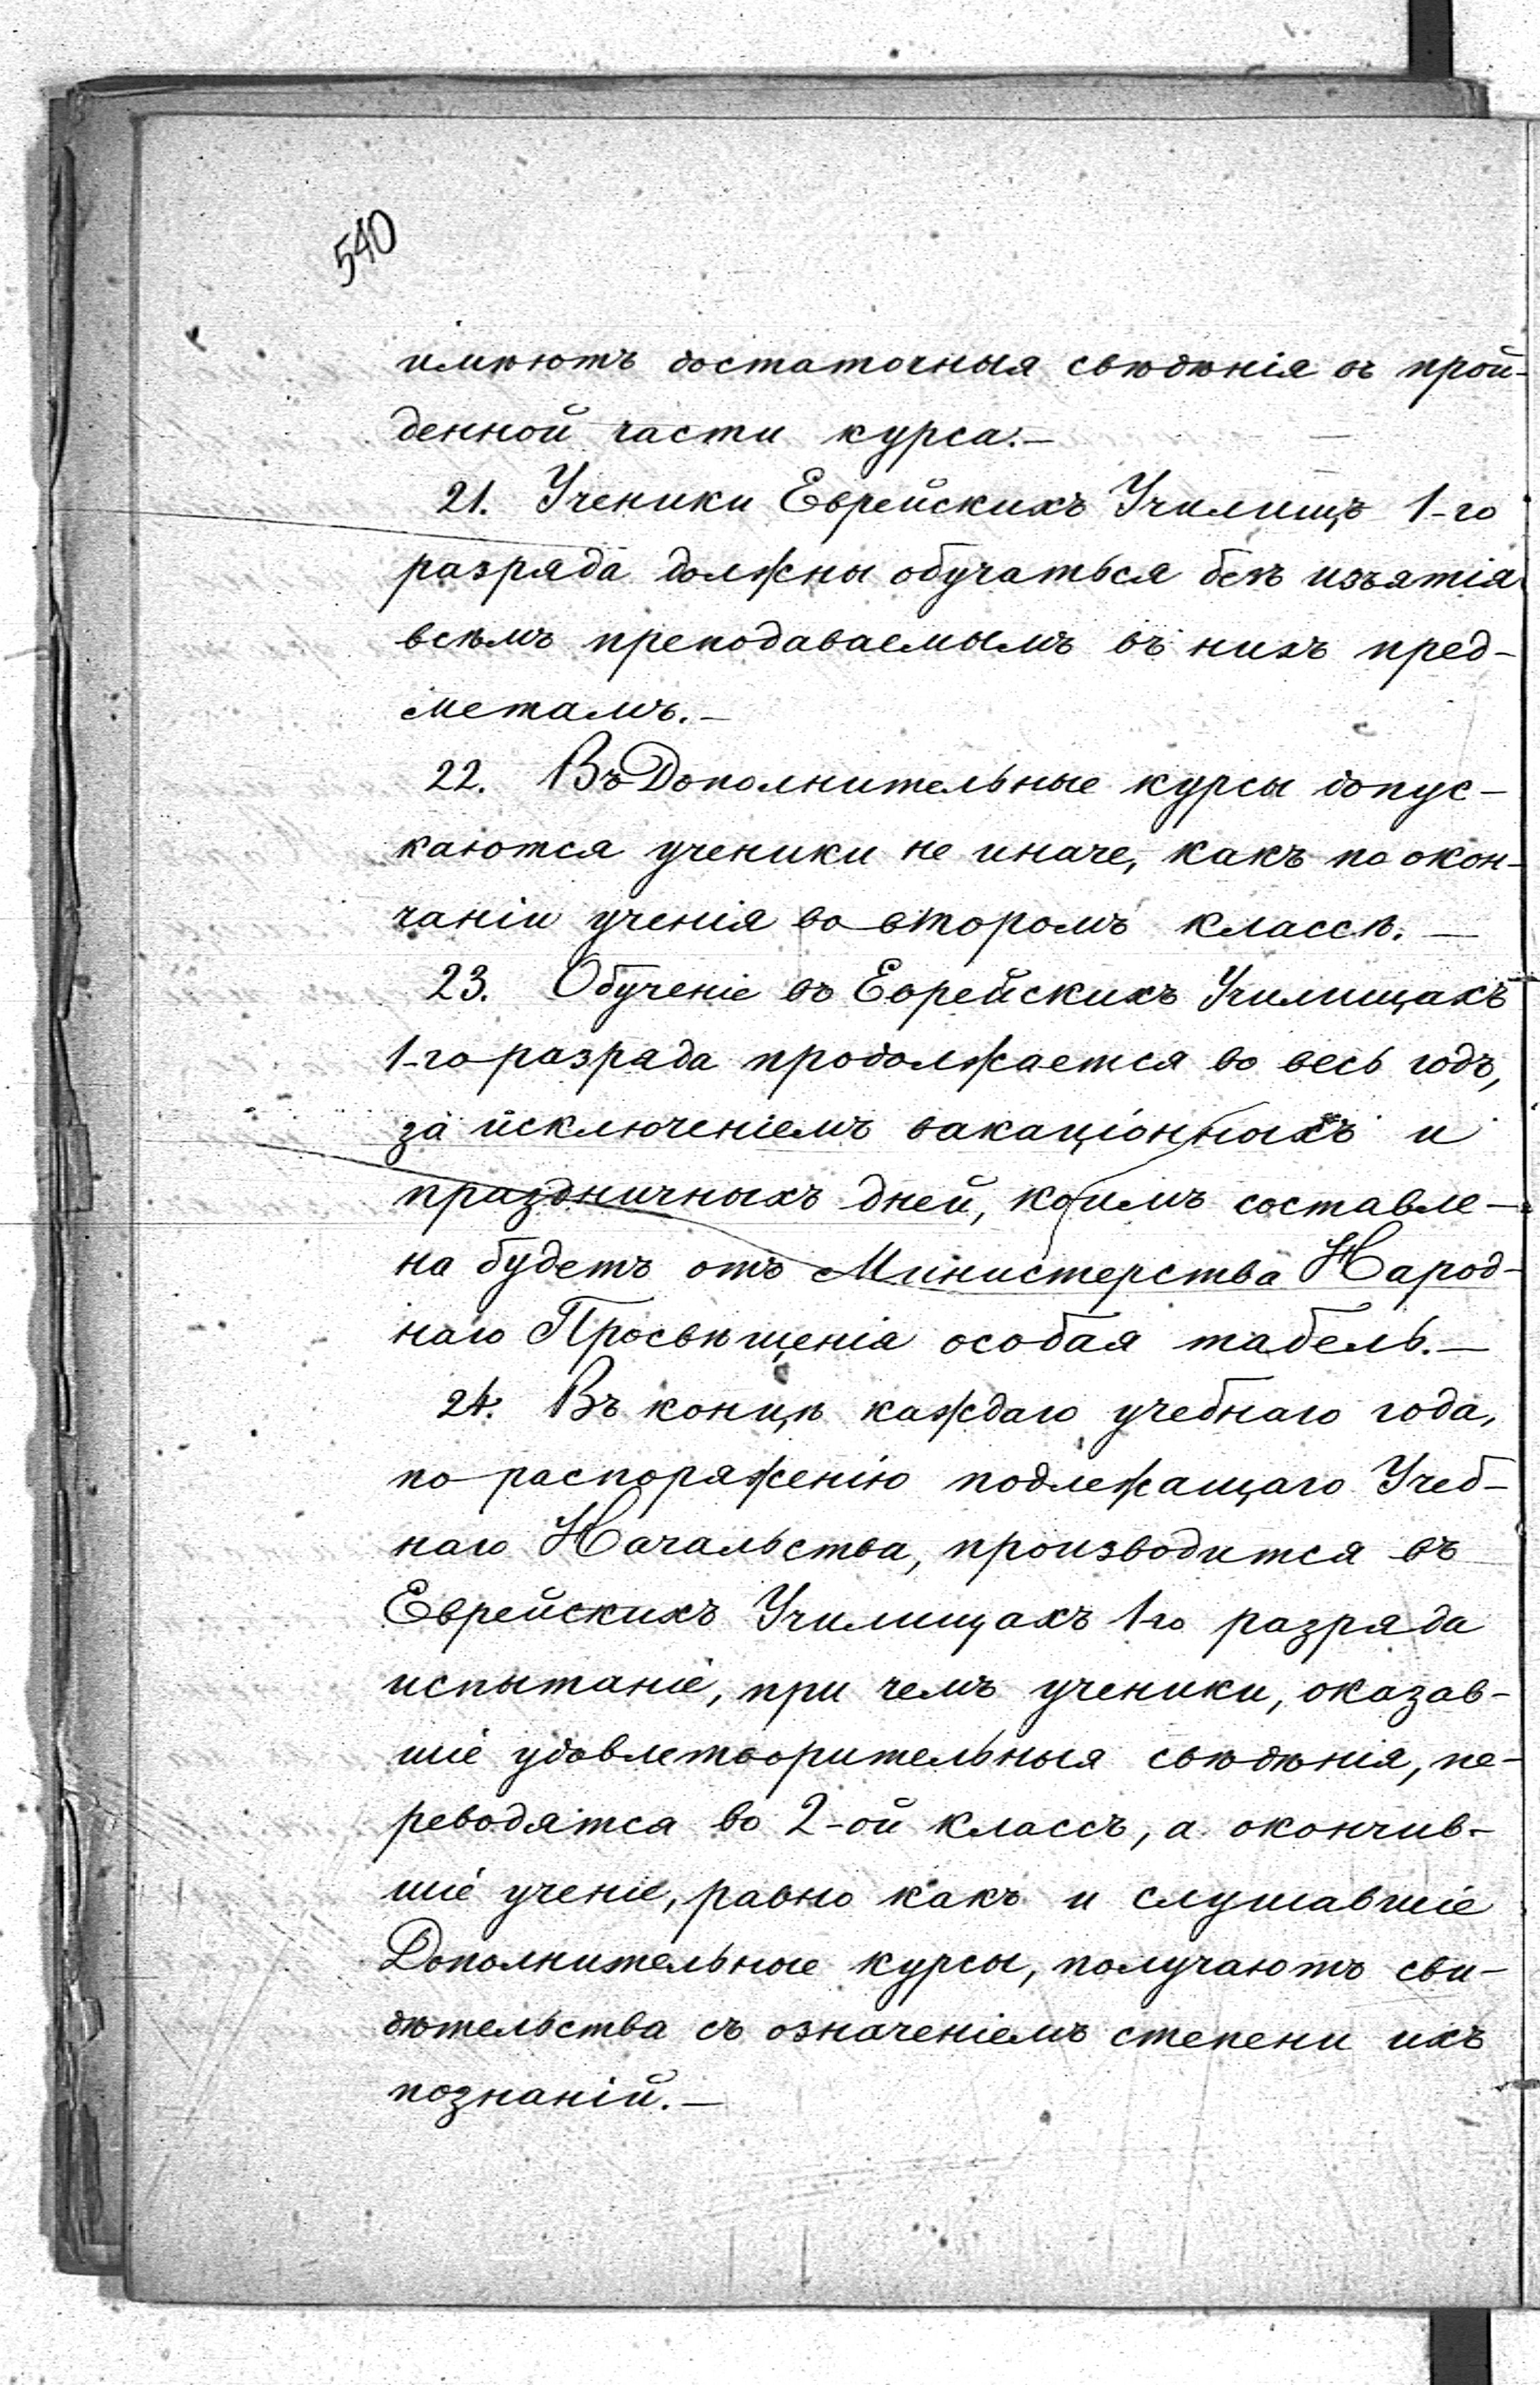 540
имѣютъ достаточныя свѣдѣнія въ прой-
денной части курса.—
21. Ученики Еврейскихъ Училищъ 1-го
разряда должны обучаться безъ изъятія
всѣмъ преподаваемымъ въ нихъ пред-
метамъ.—
22. Въ Дополнительные курсы допус-
каются ученики не иначе, какъ по окон-
чаніи ученія во второмъ классѣ.—
23. Обученіе въ Еврейскихъ Училищахъ
1-го разряда продолжается во весь годъ,
за исключеніемъ вакаціонныхъ и
праздничныхъ дней, коимъ составле-
на будетъ отъ Министерства Народ-
наго Просвѣщенія особая табель.—
24. Въ концѣ каждаго учебнаго года,
по распоряженію подлежащаго Учеб-
наго Начальства, производится въ
Еврейскихъ Училищахъ 1го разряда
испытаніе, при чемъ ученики, оказав-
шіе удовлетворительныя свѣдѣнія, пе-
реводятся во 2-ой классъ, а окончив-
шіе ученіе, равно какъ и слушавшіе
Дополнительные курсы, получаютъ сви-
дѣтельства съ означеніемъ степени ихъ
познаній.—